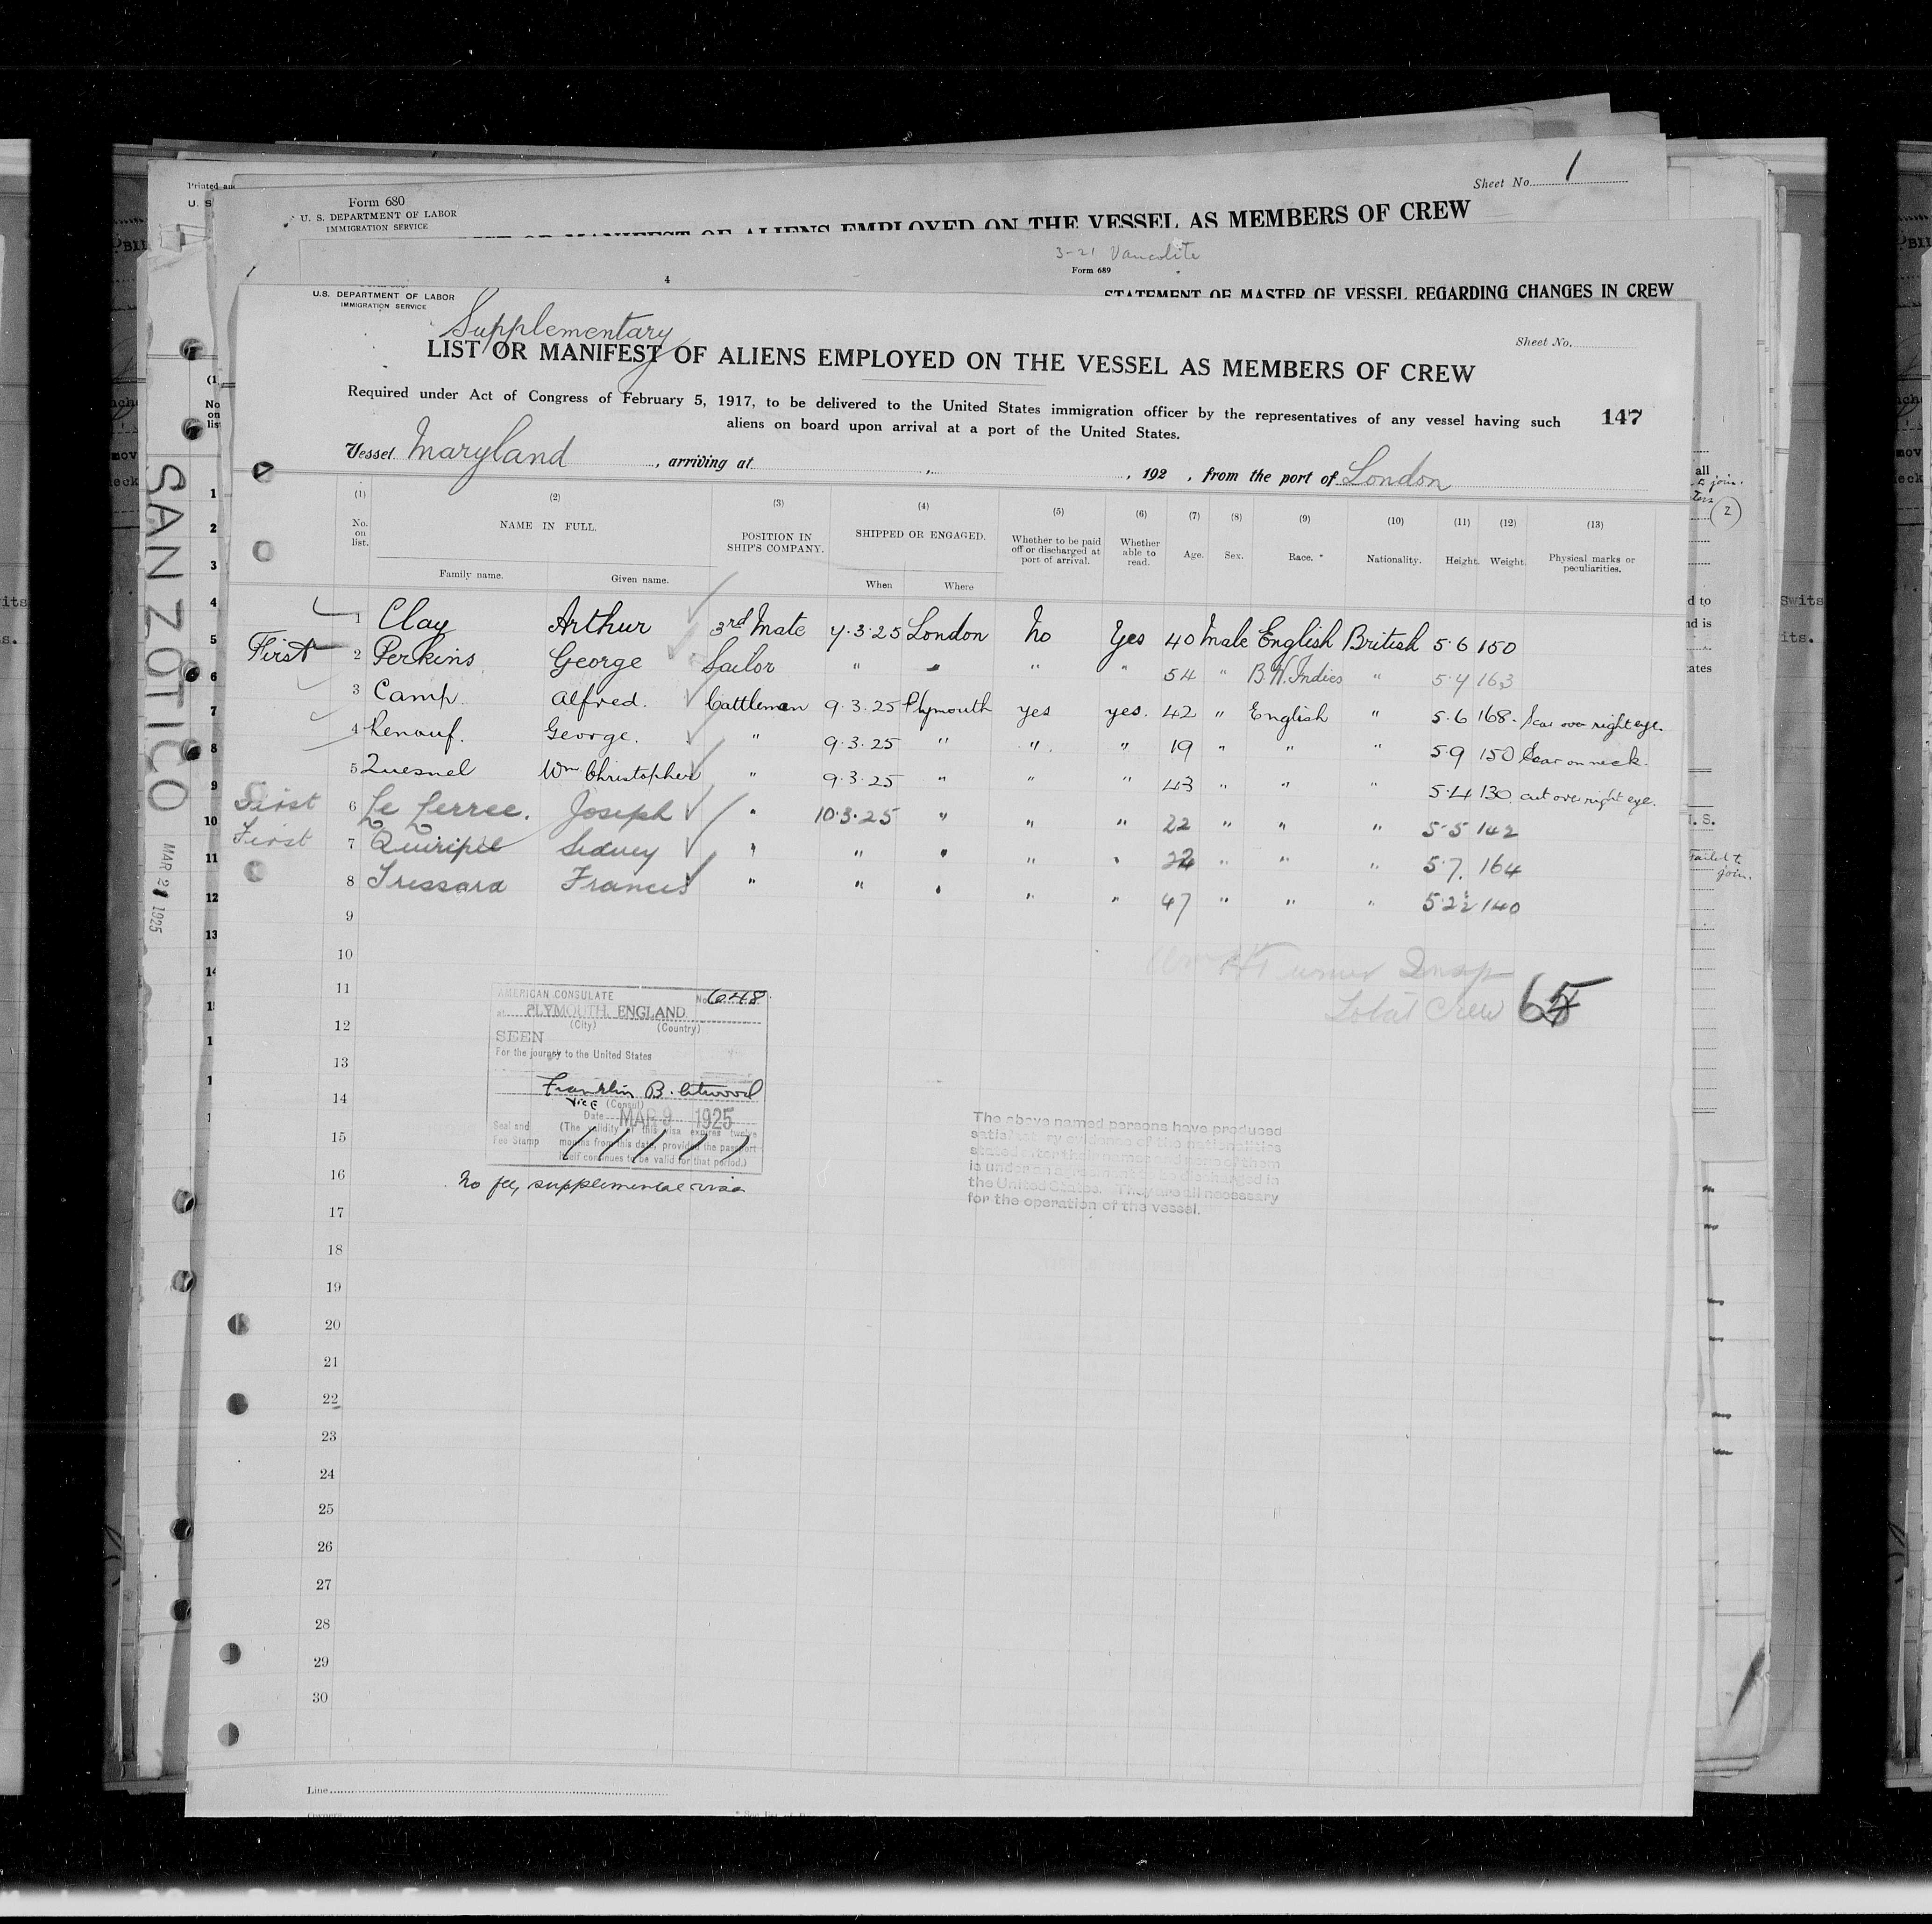 Printed and
U. S
Form 680
U. S. DEPARTMENT OF LABOR
IMMIGRATION SERVICE
Sheet No. 1
LIST OR MANIFEST OF ALIENS EMPLOYED ON THE VESSEL AS MEMBERS OF CREW
3-21 Vancolite
Form 689
4
STATEMENT OF MASTER OF VESSEL REGARDING CHANGES IN CREW
U.S. DEPARTMENT OF LABOR
IMMIGRATION SERVICE
Supplementary
Sheet No.
LIST OR MANIFEST OF ALIENS EMPLOYED ON THE VESSEL AS MEMBERS OF CREW
Required under Act of Congress of February 5, 1917, to be delivered to the United States immigration officer by the representatives of any vessel having such
aliens on board upon arrival at a port of the United States.
147
Vessel Maryland, arriving at , 192 , from the port of London
(1) (2) (3) (4) (5) (6) (7) (8) (9) (10) (11) (12) (13)
No. on list. NAME IN FULL. POSITION IN SHIP'S COMPANY. SHIPPED OR ENGAGED. Whether to be paid off or discharged at port of arrival. Whether able to read. Age. Sex. Race. * Nationality. Height. Weight. Physical marks or peculiarities.
Family name. Given name. When Where
1 Clay Arthur 3rd Mate 7.3.25 London No Yes 40 Male English British 5.6 150
First 2 Perkins George Sailor " " " " 54 " B.W. Indies " 5.7 163
3 Camp. Alfred. Cattleman 9.3.25 Plymouth yes yes. 42 " English " 5.6 168. Scar over right eye.
4 Renouf. George. " 9.3.25 " " " 19 " " " 5.9 150 Scar on neck.
5 Quesnel Wm Christopher " 9.3.25 " " " 43 " " " 5.4 130. cut over right eye.
First 6 Le Ferree. Joseph " 10.3.25 " " " 22 " " " 5.5 142
First 7 Quiripel Sidney " " " " " 22 " " " 5.7. 164
8 Trussard Francis " " " " " 47 " " " 5.2½ 140
9
10
Turner Insp
11
Total Crew 65
12
13
14
15
16
17
18
19
20
21
22
23
24
25
26
27
28
29
30
AMERICAN CONSULATE No. 648.
at PLYMOUTH, ENGLAND.
(City) (Country)
SEEN
For the journey to the United States
Franklin B. Atwood
Vice (Consul)
Date MAR 9 1925
Seal and Fee Stamp
(The validity of this visa expires twelve
months from this date, provided the passport
itself continues to be valid for that period.)
No fee, supplemental visa
The above named persons have produced
satisfactory evidence of the nationalities
stated after their names and none of them
is under an agreement to be discharged in
the United States. They are all necessary
for the operation of the vessel.
Line
Owners
SAN ZOTICO
MAR 21 1925
all
2
Failed to join.